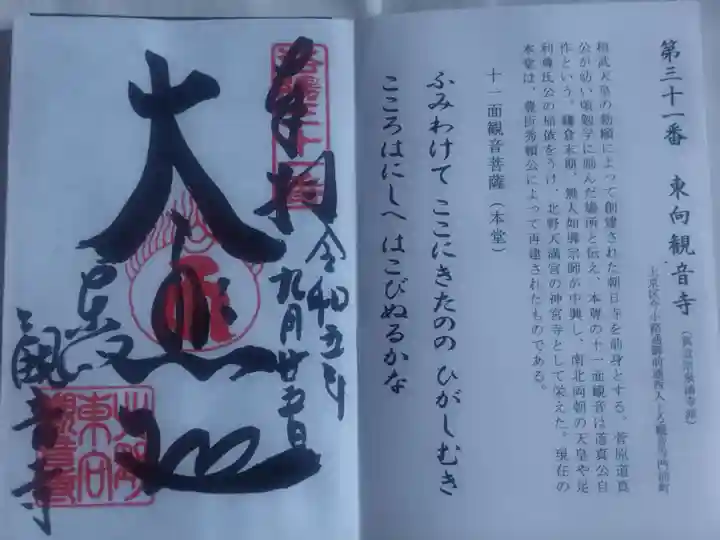 第三十一番 東向観音寺
(真言宗泉涌寺派)
上京区今小路通御前通西入上る観音寺門前町
桓武天皇の勅願によって創建された朝日寺を前身とする。菅原道真
公が幼い頃勉学に励んだ場所と伝え、本尊の十一面観音は道真公自
作という。鎌倉末期、無人如導宗師が中興し、南北両朝の天皇や足
利尊氏公の帰依をうけ、北野天満宮の神宮寺として栄えた。現在の
本堂は、豊臣秀頼公によって再建されたものである。
十一面観音菩薩(本堂)
ふみわけて ここにきたのの ひがしむき
こころはにしへ はこびぬるかな
奉拝
令和五年
九月廿五日
洛陽三十一番
大悲
東向
観音寺